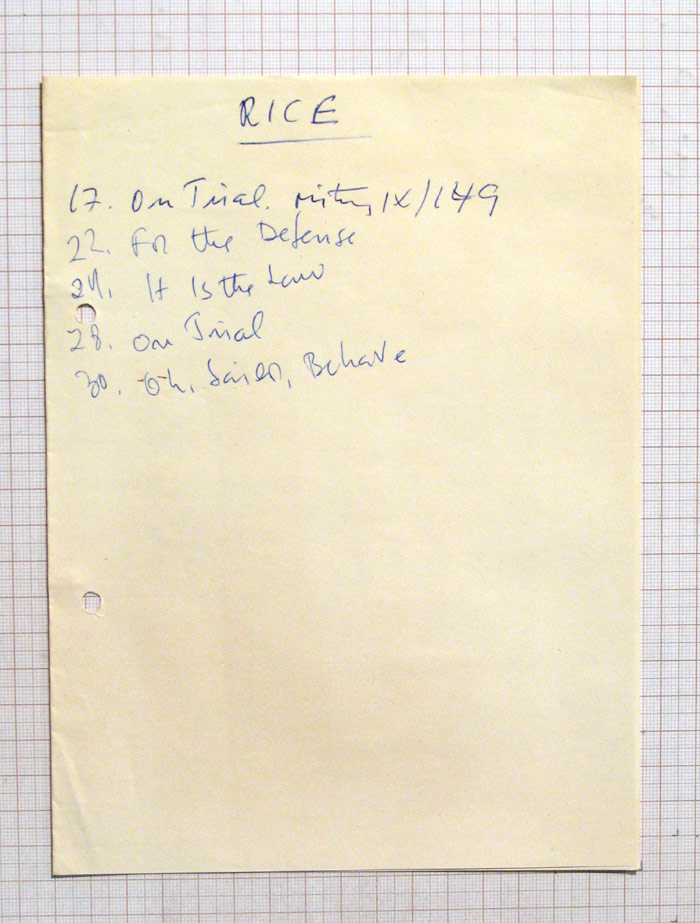 RICE
17. On Trial. IX/149
22. For the Defense
24. It Is the Law
28. On Trial
30. Oh, Sailor, Behave